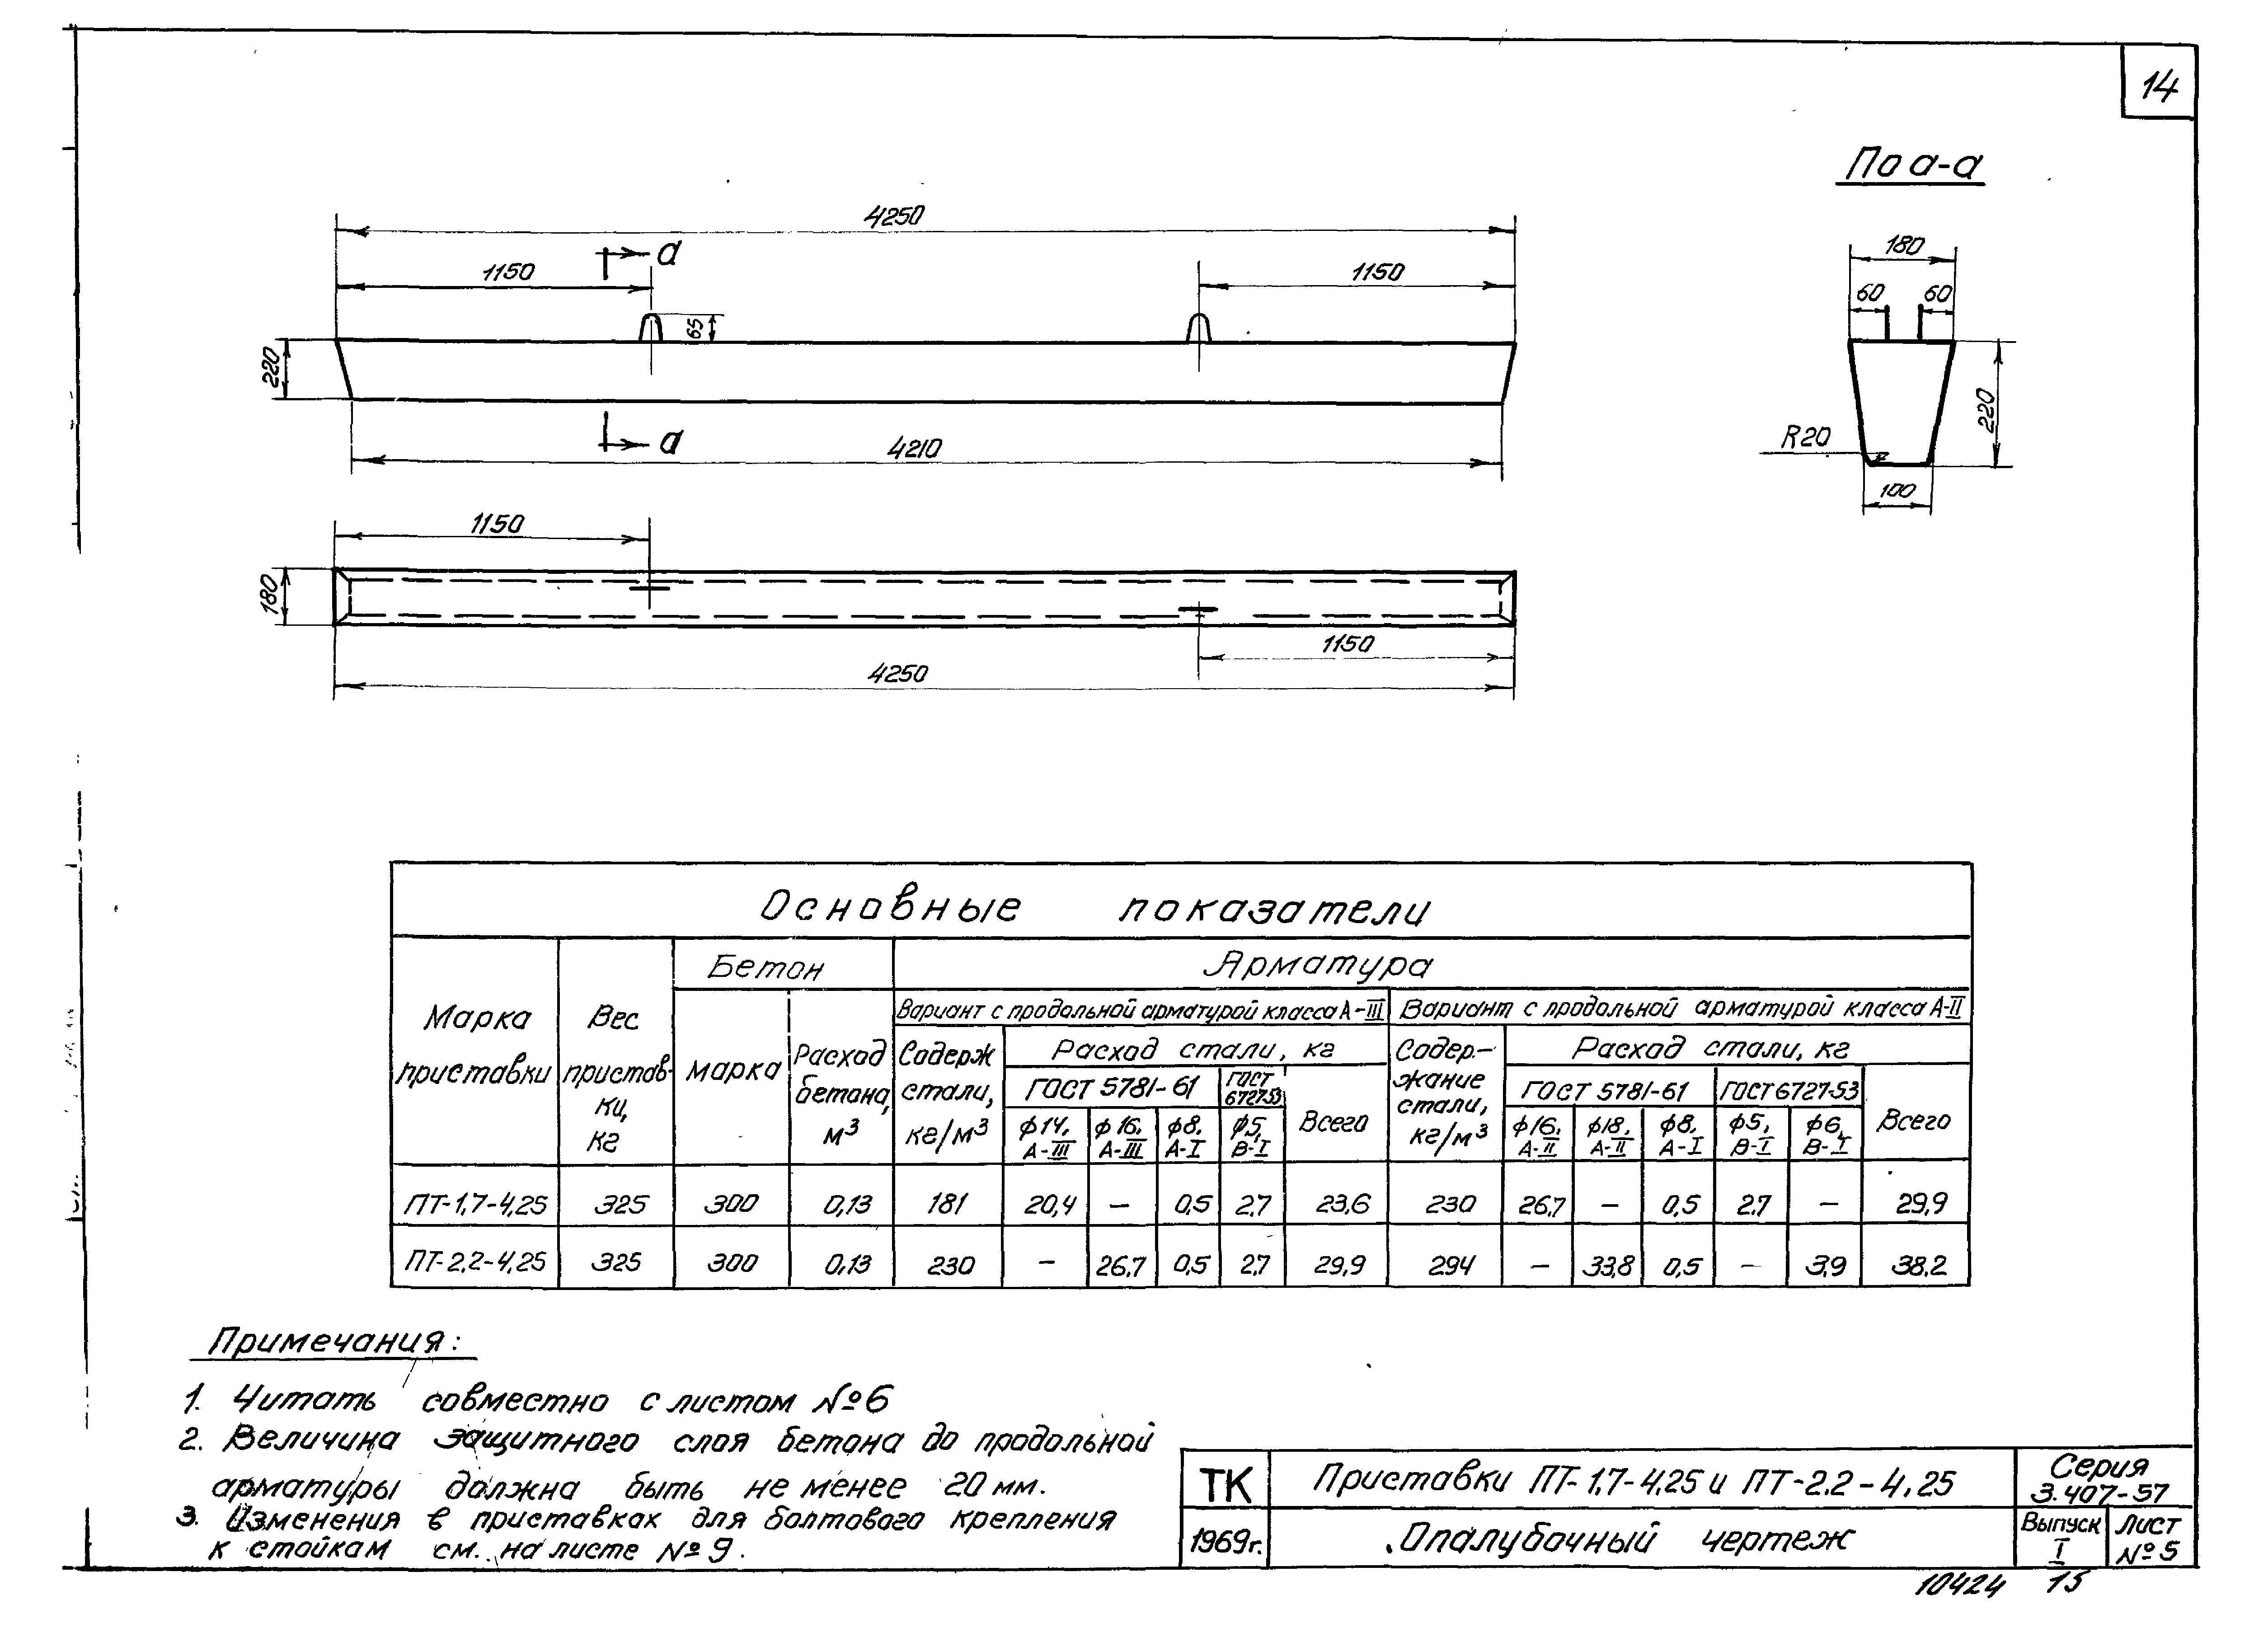 14
По а-а
4250
а
1150
1150
65
220
а
4210
180
60
60
R20
220
100
1150
180
1150
4250
Основные показатели
Марка приставки
Вес пристав-ки, кг
Бетон
Арматура
марка
Расход бетона, м³
Вариант с продольной арматурой класса А-III
Вариант с продольной арматурой класса А-II
Содерж стали, кг/м³
Расход стали, кг
Содер.-жание стали, кг/м³
Расход стали, кг
ГОСТ 5781-61
ГОСТ 6727-53
Всего
ГОСТ 5781-61
ГОСТ 6727-53
Всего
ф14, А-III
ф16, А-III
ф8, А-I
ф5, В-I
ф16, А-II
ф18, А-II
ф8, А-I
ф5, В-I
ф6, В-I
ПТ-1,7-4,25 325 300 0,13 181 20,4 — 0,5 2,7 23,6 230 26,7 — 0,5 2,7 — 29,9
ПТ-2,2-4,25 325 300 0,13 230 — 26,7 0,5 2,7 29,9 294 — 33,8 0,5 — 3,9 38,2
Примечания:
1. Читать совместно с листом №6
2. Величина защитного слоя бетона до продольной
арматуры должна быть не менее 20 мм.
3. Изменения в приставках для болтового крепления
к стойкам см. на листе №9.
ТК
Приставки ПТ-1,7-4,25 и ПТ-2.2-4,25
Серия
3.407-57
1969г.
Опалубочный чертеж
Выпуск
I
Лист
№5
10424 15